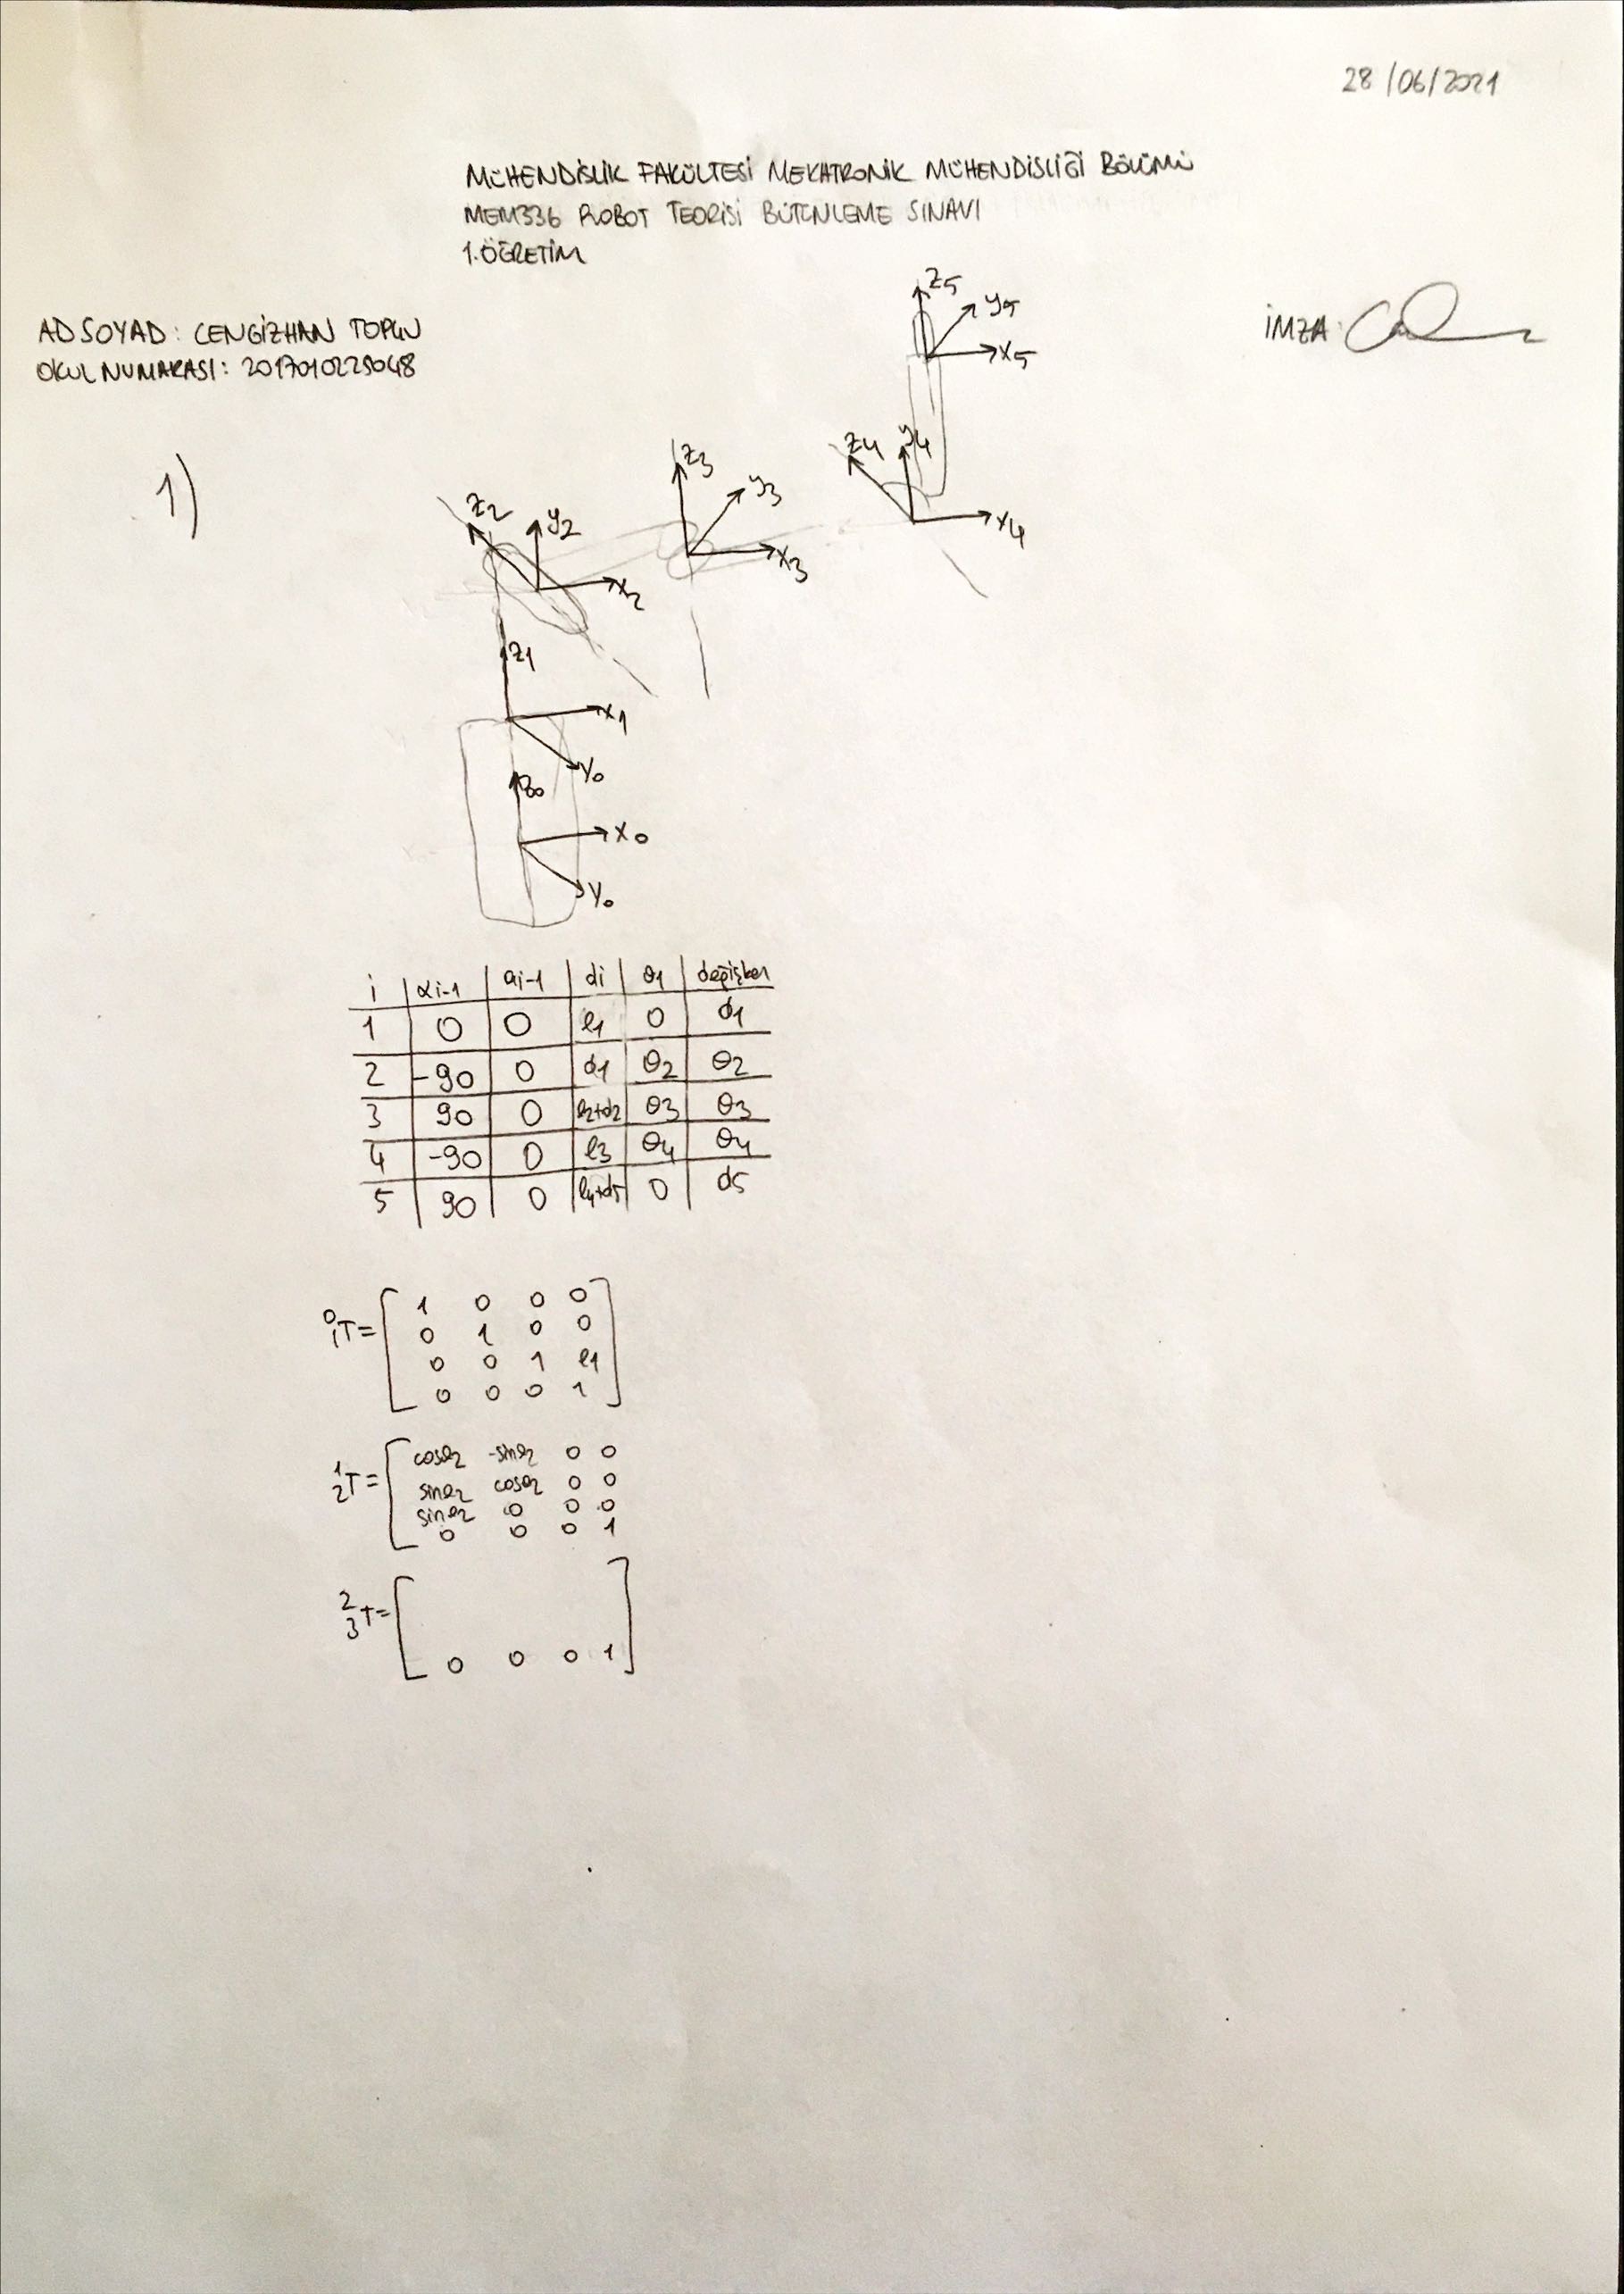 28/06/2021
MÜHENDİSLİK FAKÜLTESİ MEKATRONİK MÜHENDİSLİĞİ BÖLÜMÜ
MEM336 ROBOT TEORİSİ BÜTÜNLEME SINAVI
1.ÖĞRETİM
AD SOYAD: CENGİZHAN
OKUL NUMARASI:
İMZA:
1)
z5
y5
x5
z4 y4
x4
z3
y3
x3
z2 y2
x2
z1
x1
y0
z0
x0
y0
i αi-1 ai-1 di θ1 değişken
1 0 0 l1 0 d1
2 -90 0 d1 θ2 θ2
3 90 0 l2+d2 θ3 θ3
4 -90 0 l3 θ4 θ4
5 90 0 l4+d5 0 d5
0 1T= [ 1 0 0 0
0 1 0 0
0 0 1 l1
0 0 0 1 ]
1 2T= [ cosθ2 -sinθ2 0 0
sinθ2 cosθ2 0 0
sinθ2 0 0 0
0 0 0 1
2 3T= [
0 0 0 1 ]